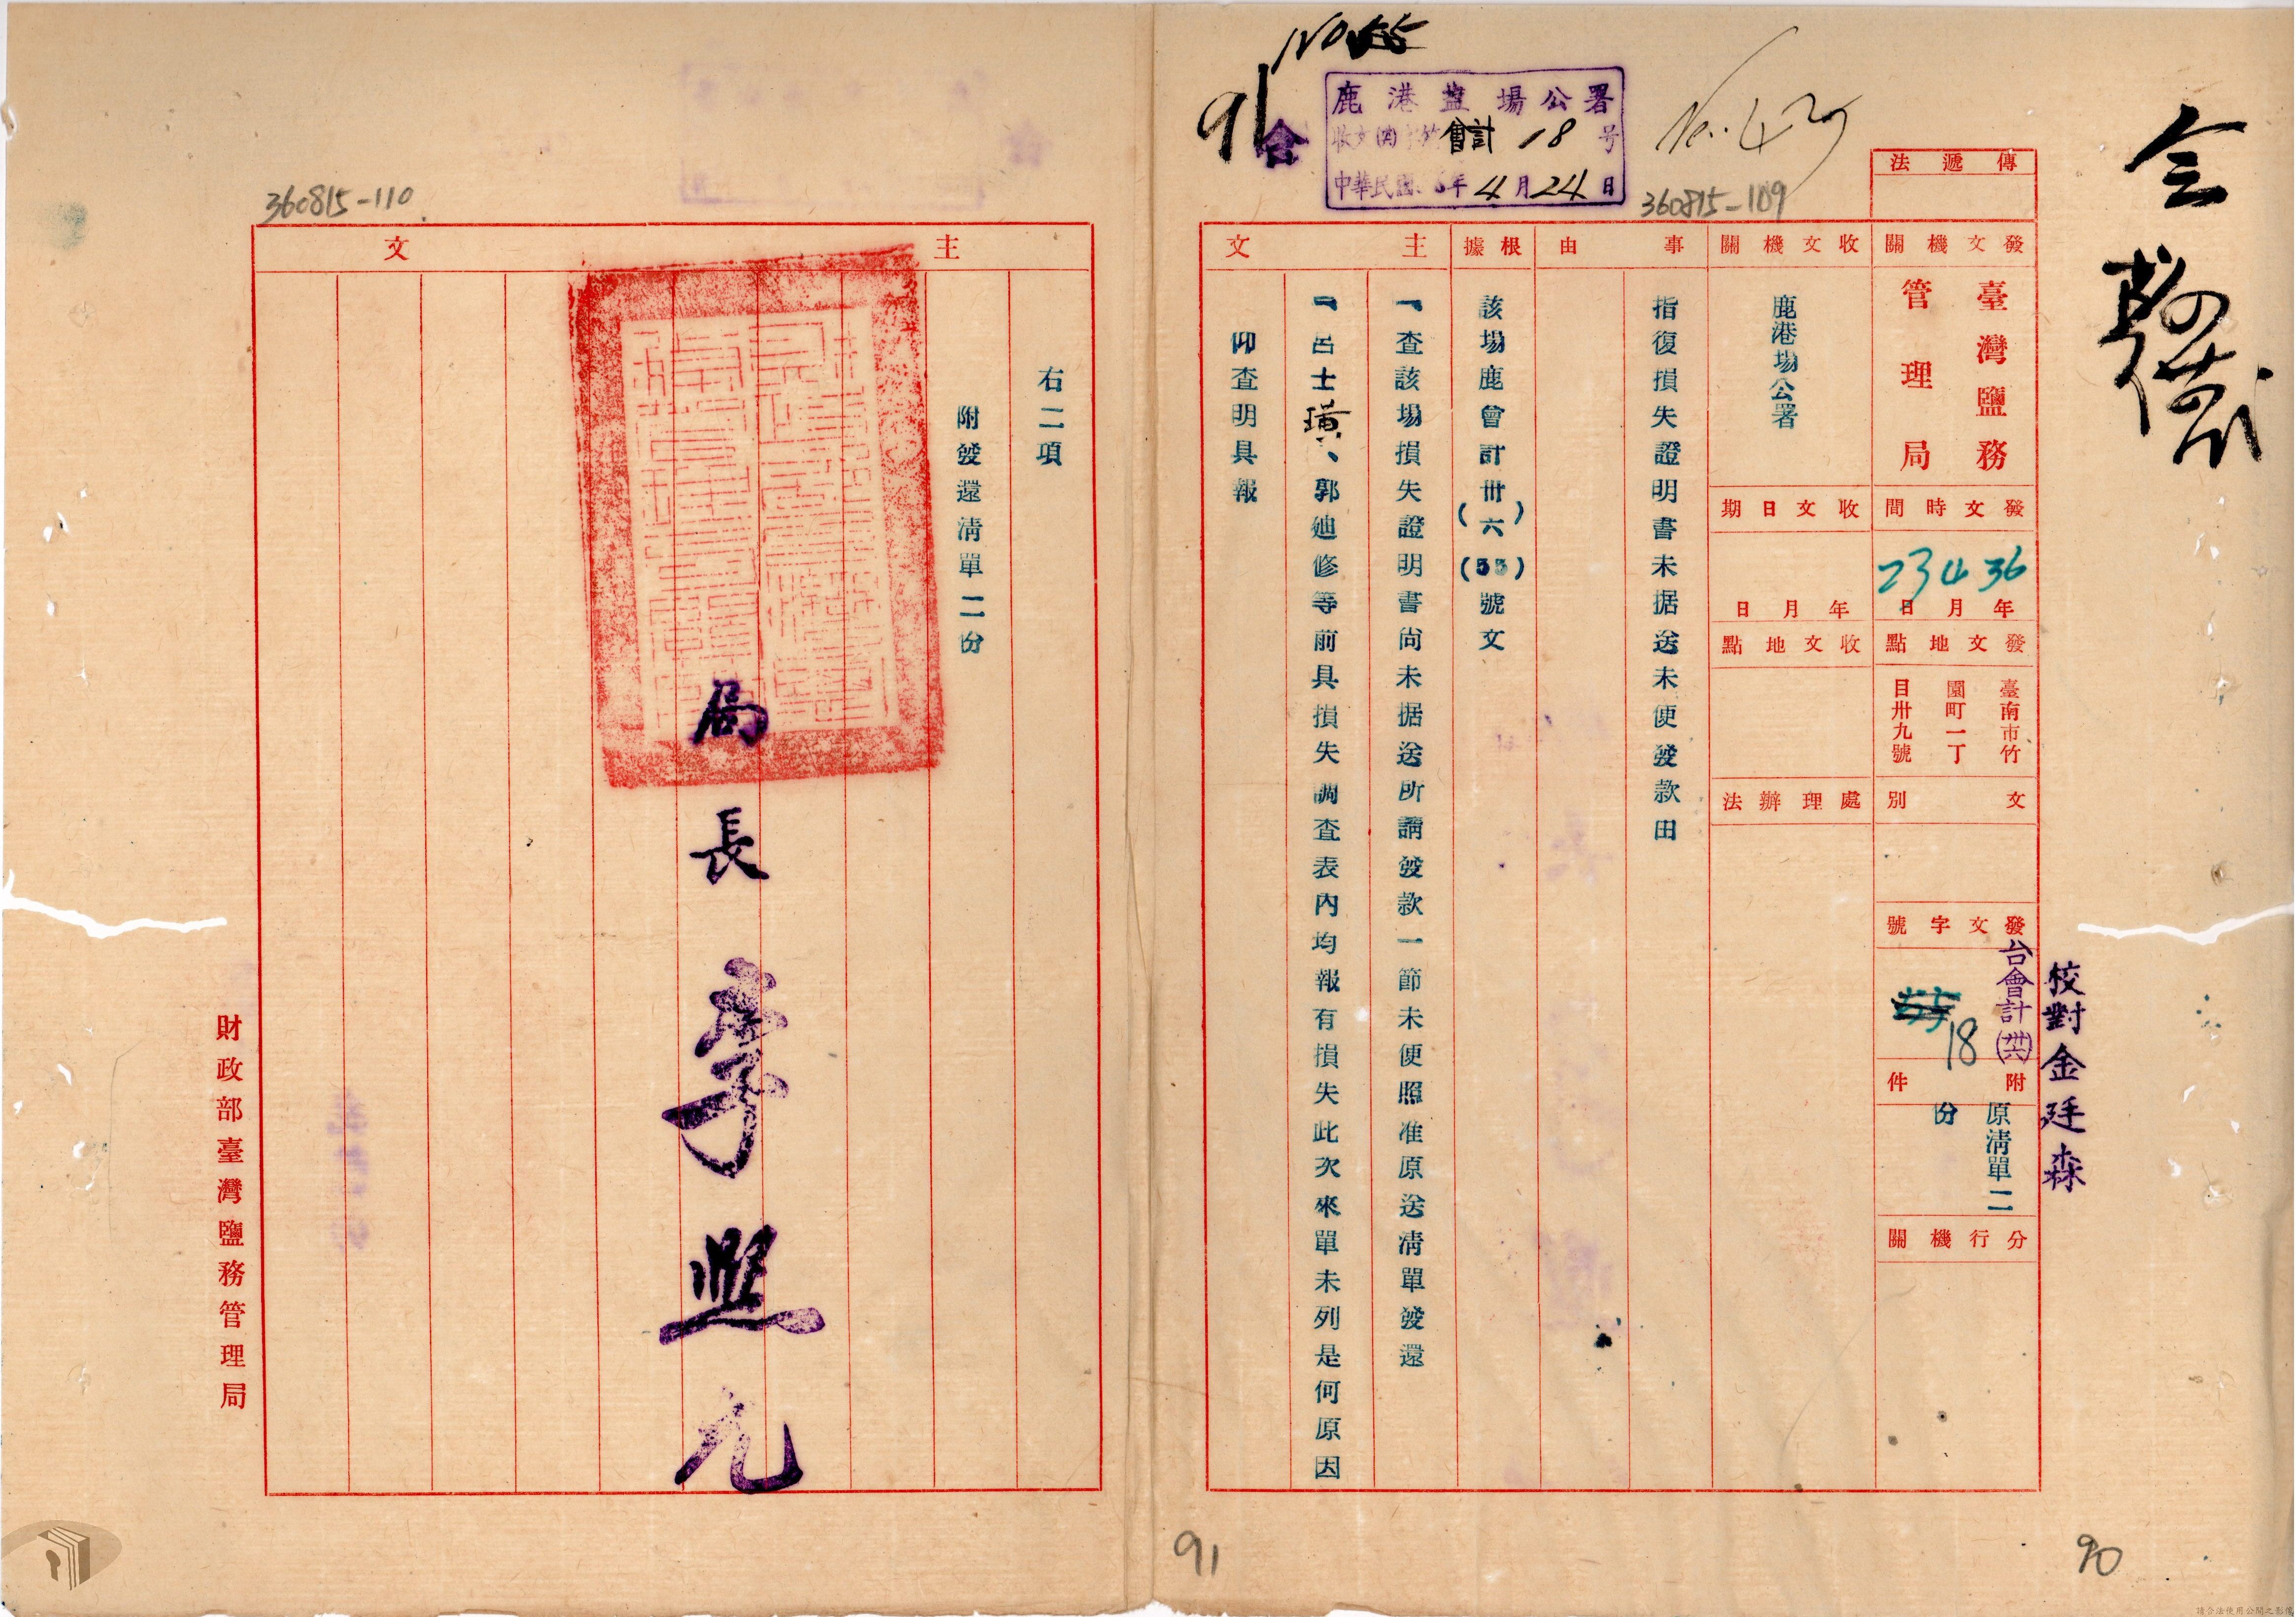 No.43
360815-109
91
鹿港鹽場公署
會計 18 号
中華民國 年4月24日
傳遞法
發文機關
臺灣鹽務
管理局
發文時間
36 4 23
年月日
發文地點
臺南市竹
園町一丁
目卅九號
文別
發文字號
台會計(卅六)
18
附件
原清單二
份
分行機關
校對金廷森
收文機關
鹿港場公署
收文日期
年月日
收文地點
處理辦法
事由
指復損失證明書未据送未便發款由
根據
該場鹿會計卅(六)(55)號文
主文
一查該場損失證明書尚未据送所請發款一節未便照准原送清單發還
一呂士璜、郭廸修等前具損失調查表內均報有損失此次來單未列是何原因
仰查明具報
90
91
360815-110
主文
右二項
附發還清單二份
局長李熙元
財政部臺灣鹽務管理局